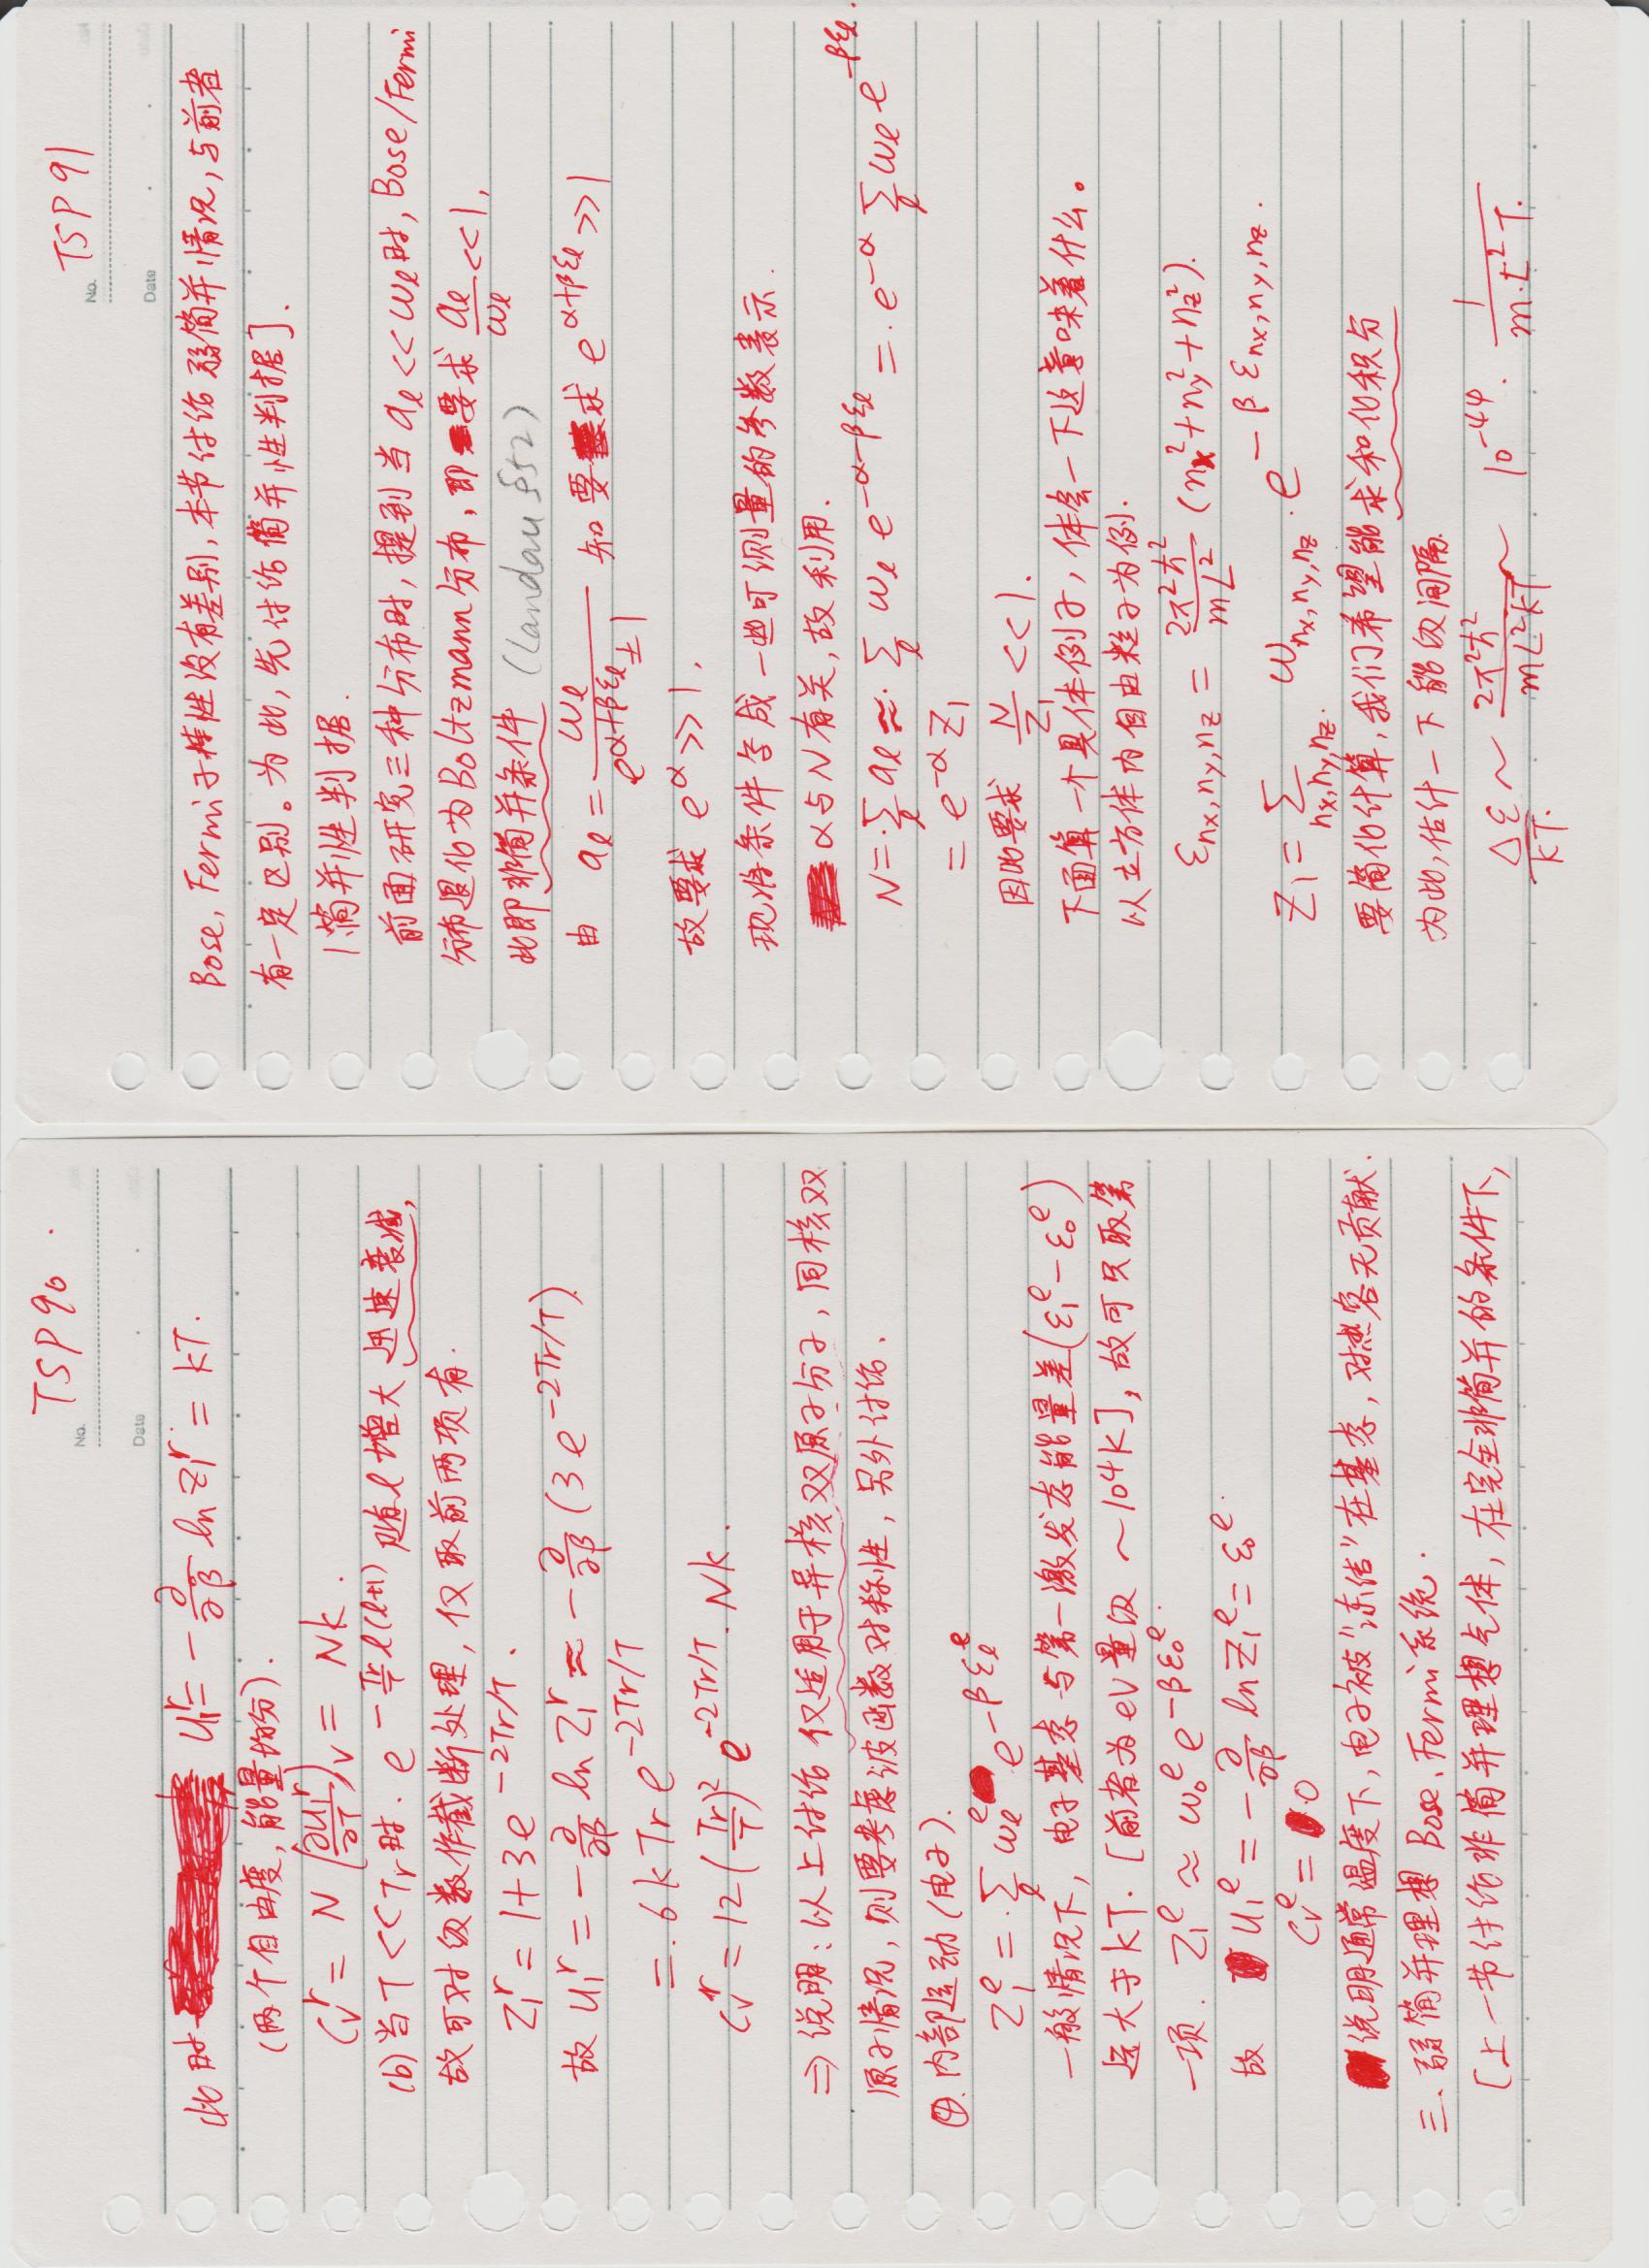 TSP90
No.
Date
此时 u₁ʳ = -∂/∂β ln Z₁ʳ = kT.
(两个自由度, 能量均分).
Cᵥʳ = N (∂u₁ʳ/∂T)ᵥ = Nk.
(b) 当 T << Tr 时. e^{-Tr/T l(l+1)} 随 l 增大 迅速衰减,
故可对级数作截断处理, 仅取前两项有.
Z₁ʳ = 1+3e^{-2Tr/T}.
故 u₁ʳ = -∂/∂β ln Z₁ʳ ≈ -∂/∂β (3e^{-2Tr/T})
= 6kTr e^{-2Tr/T}
Cᵥʳ = 12 (Tr/T)² e^{-2Tr/T}. Nk.
⇒ 说明: 以上讨论 仅适用于异核双原子分子, 同核双
原子情况, 则要考虑波函数对称性, 另外讨论.
④. 内部运动 (电子).
Z₁ᵉ = Σ_l ω_lᵉ e^{-βε_lᵉ}
一般情况下, 电子基态与第一激发态能量差(ε₁ᵉ-ε₀ᵉ)
远大于kT. [前者为eV量级 ~10⁴K], 故可只取第
一项. Z₁ᵉ ≈ ω₀ᵉ e^{-βε₀ᵉ}.
故 u₁ᵉ = -∂/∂β ln Z₁ᵉ = ε₀ᵉ.
Cᵥᵉ = 0
说明通常温度下, 电子被“冻结”在基态, 对热容无贡献.
三、弱简并理想 Bose、Fermi系统.
[上一节讨论非简并理想气体, 在完全非简并的条件下,
TSP91
No.
Date
Bose, Fermi子特性没有差别, 本节讨论弱简并情况, 与前者
有一定区别。为此, 先讨论简并性判据].
1 简并性判据.
前面研究三种分布时, 提到当 a_l << ω_l 时, Bose/Fermi
分布退化为Boltzmann分布, 即要求 a_l/ω_l << 1,
此即非简并条件 (Landau §52)
由 a_l = ω_l/(e^{α+βε_l} ± 1) 知要求 e^{α+βε_l} >> 1
故要求 e^α >> 1.
现将条件写成一些可测量的参数表示.
α与N有关, 故利用.
N = Σ_l a_l ≈ Σ_l ω_l e^{-α-βε_l} = e^{-α} Σ_l ω_l e^{-βε_l}.
= e^{-α} Z₁
因此要求 N/Z₁ << 1.
下面算一个具体例子, 体会一下这意味着什么。
以立方体内自由粒子为例.
ε_{nx,ny,nz} = 2π²ħ²/mL² (nx²+ny²+nz²).
Z₁ = Σ_{nx,ny,nz} ω_{nx,ny,nz}. e^{-βε_{nx,ny,nz}}.
要简化计算, 我们希望能求和化积分
为此, 估计一下能级间隔.
Δε/kT ~ 2π²ħ²/mL²kT ~ 10⁻⁴⁴. 1/m.L²T.